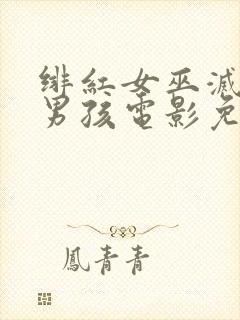 緋紅女巫滅
男孩電影免
鳳青青